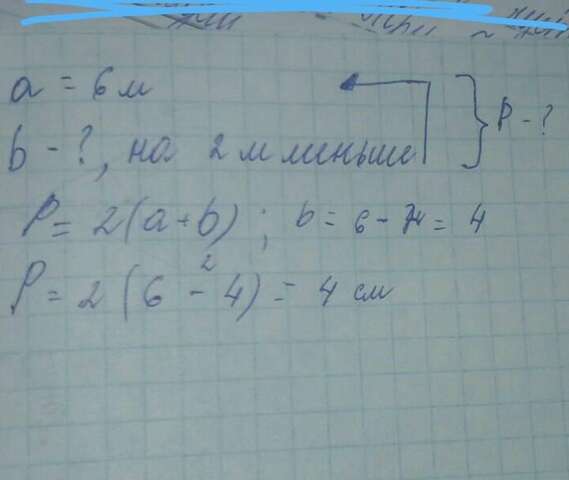 a = 6 м
b - ?, на 2 м меньше
P - ?
P = 2(a+b) ; b = 6 - = 4
2
P = 2(6 - 4) = 4 см